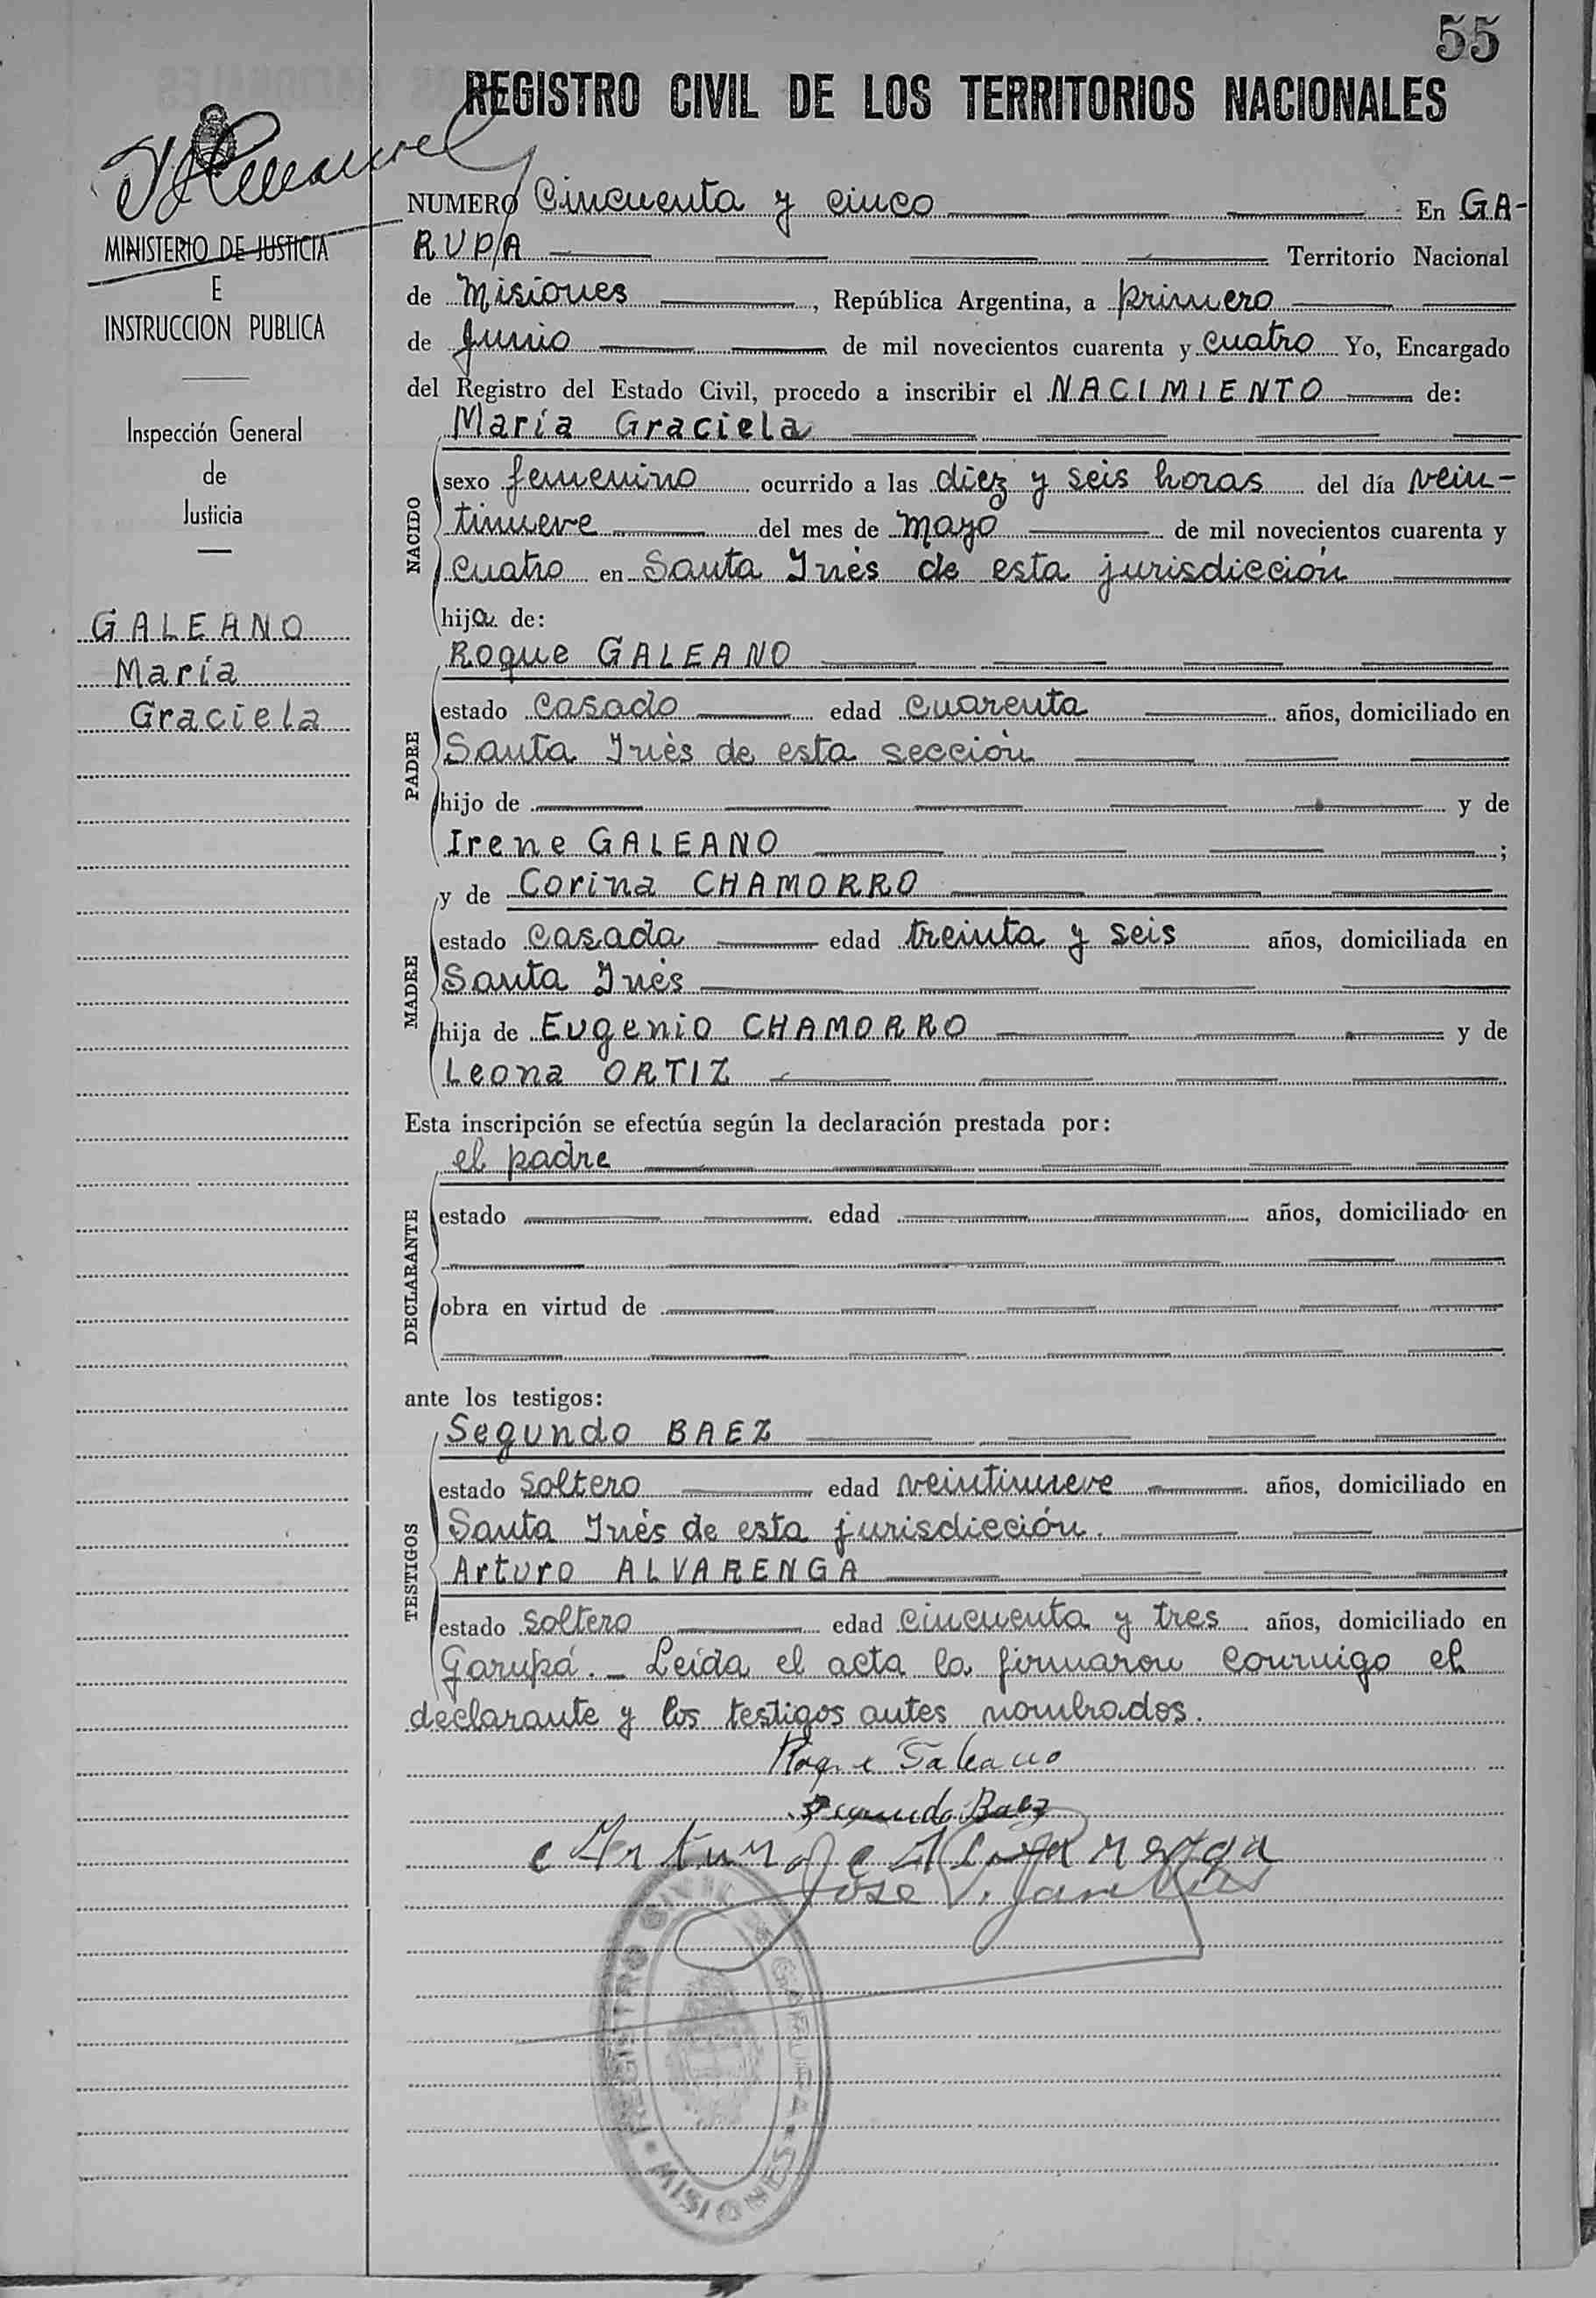 55
REGISTRO CIVIL DE LOS TERRITORIOS NACIONALES
MINISTERIO DE JUSTICIA
E
INSTRUCCION PUBLICA
Inspección General
de
Justicia
GALEANO
María
Graciela
NUMERO Cincuenta y cinco En GA-
RUPA Territorio Nacional
de Misiones, República Argentina, a primero
de Junio de mil novecientos cuarenta y cuatro Yo, Encargado
del Registro del Estado Civil, procedo a inscribir el NACIMIENTO de:
María Graciela
NACIDO
sexo femenino ocurrido a las diez y seis horas del día vein-
tinueve del mes de mayo de mil novecientos cuarenta y
cuatro en Santa Inés de esta jurisdicción
hija de:
Roque GALEANO
PADRE
estado casado edad cuarenta años, domiciliado en
Santa Inés de esta sección
hijo de y de
Irene GALEANO ;
y de Corina CHAMORRO
MADRE
estado casada edad treinta y seis años, domiciliada en
Santa Inés
hija de Eugenio CHAMORRO y de
Leona ORTIZ
Esta inscripción se efectúa según la declaración prestada por:
el padre
DECLARANTE
estado edad años, domiciliado en
obra en virtud de
ante los testigos:
Segundo BAEZ
TESTIGOS
estado soltero edad veintinueve años, domiciliado en
Santa Inés de esta jurisdicción.
Arturo ALVARENGA
estado soltero edad cincuenta y tres años, domiciliado en
Garupá. - Leída el acta la firmaron conmigo el
declarante y los testigos antes nombrados.
Roque Galeano
Segundo Baez
Arturo Alvarenga
José V.
REGISTRO CIVIL DE GARUPA • MISIONES •